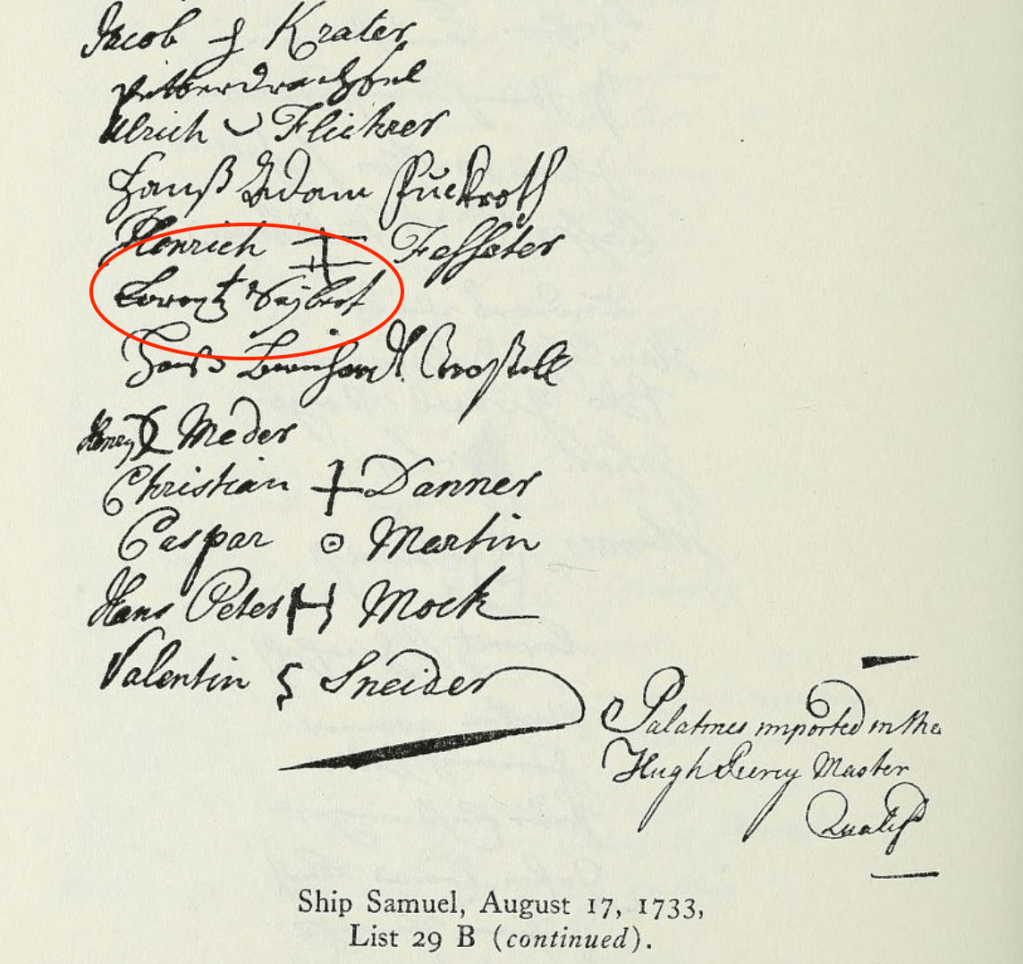 Jacob Krater
Ulrich Fliehrer
Hanß Adam
Henrich
Lorentz Seybert
Hanß Bernhardt
Henry Meder
Christian Danner
Caspar Martin
Hans Peter H Mock
Valentin Sneider
Palatines imported in the
Hugh Percy Master
Qualif
Ship Samuel, August 17, 1733,
List 29 B (continued).